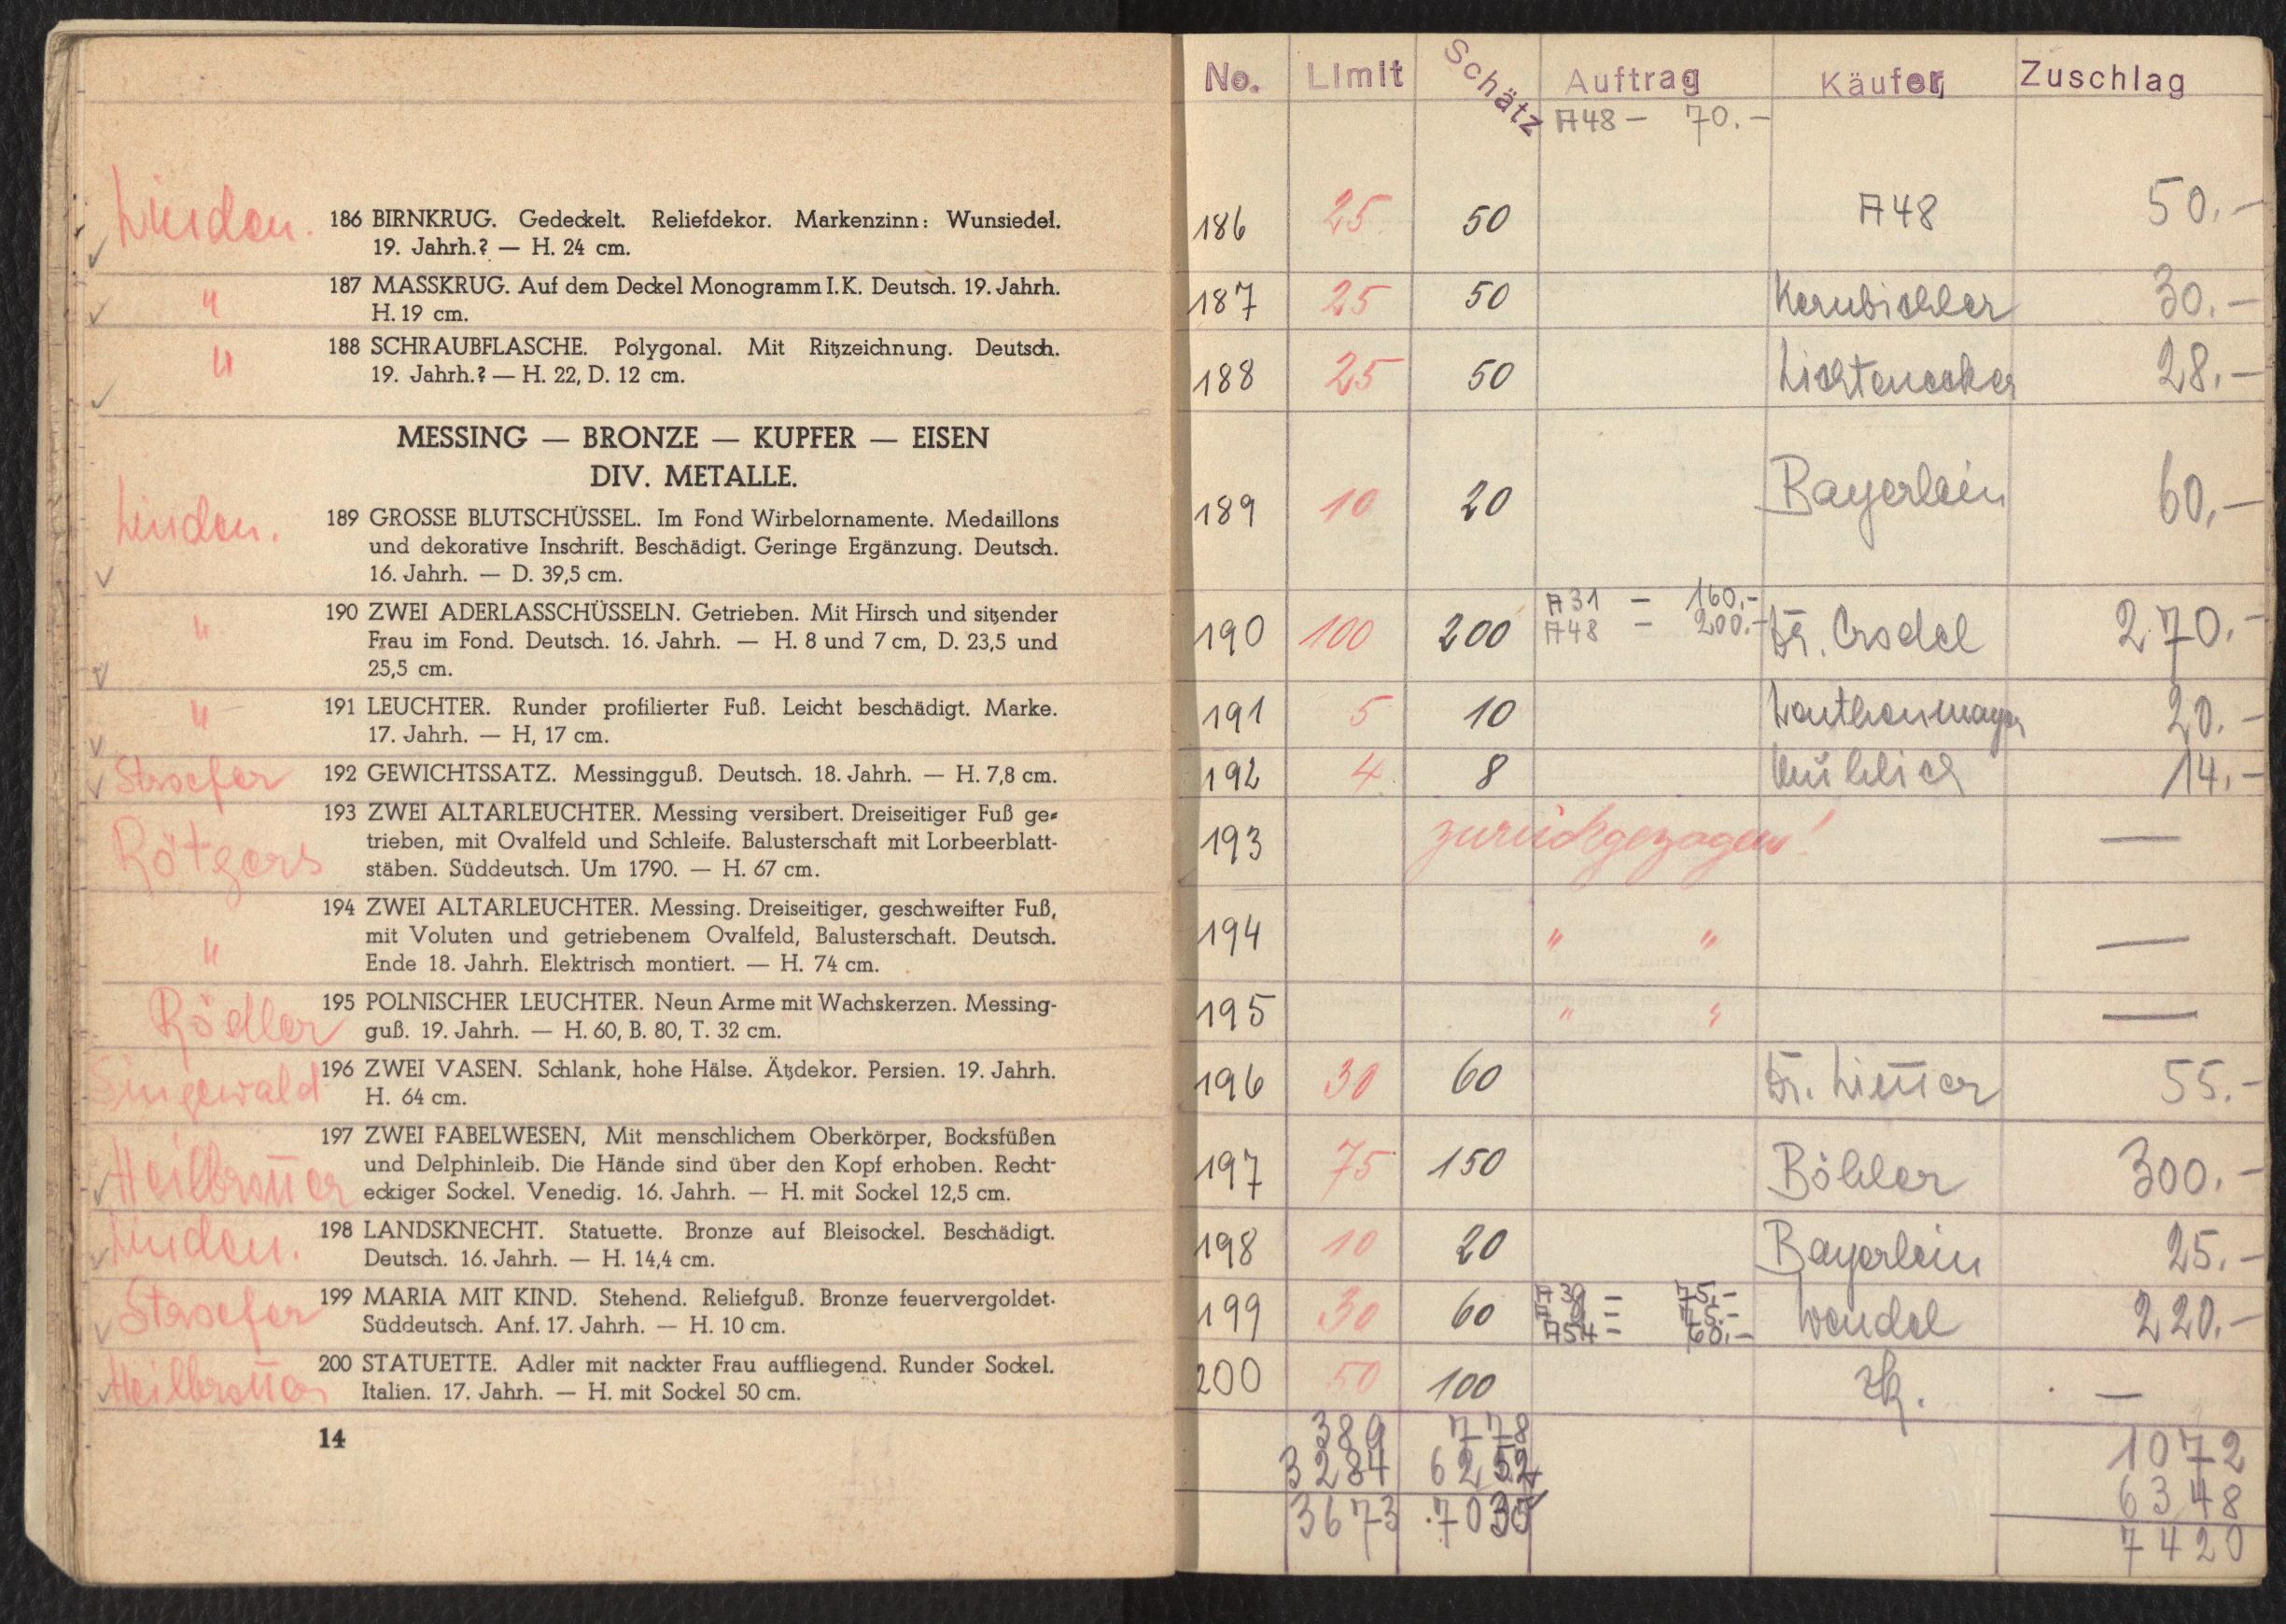 Linden.
186 BIRNKRUG. Gedeckelt. Reliefdekor. Markenzinn: Wunsiedel.
19. Jahrh.? — H. 24 cm.
"
187 MASSKRUG. Auf dem Deckel Monogramm I.K. Deutsch. 19. Jahrh.
H. 19 cm.
"
188 SCHRAUBFLASCHE. Polygonal. Mit Ritzzeichnung. Deutsch.
19. Jahrh.? — H. 22, D. 12 cm.
MESSING — BRONZE — KUPFER — EISEN
DIV. METALLE.
Linden.
189 GROSSE BLUTSCHÜSSEL. Im Fond Wirbelornamente. Medaillons
und dekorative Inschrift. Beschädigt. Geringe Ergänzung. Deutsch.
16. Jahrh. — D. 39,5 cm.
"
190 ZWEI ADERLASSCHÜSSELN. Getrieben. Mit Hirsch und sitzender
Frau im Fond. Deutsch. 16. Jahrh. — H. 8 und 7 cm, D. 23,5 und
25,5 cm.
"
191 LEUCHTER. Runder profilierter Fuß. Leicht beschädigt. Marke.
17. Jahrh. — H, 17 cm.
Stroefer
192 GEWICHTSSATZ. Messingguß. Deutsch. 18. Jahrh. — H. 7,8 cm.
Rötgers
193 ZWEI ALTARLEUCHTER. Messing versibert. Dreiseitiger Fuß ge-
trieben, mit Ovalfeld und Schleife. Balusterschaft mit Lorbeerblatt-
stäben. Süddeutsch. Um 1790. — H. 67 cm.
"
194 ZWEI ALTARLEUCHTER. Messing. Dreiseitiger, geschweifter Fuß,
mit Voluten und getriebenem Ovalfeld, Balusterschaft. Deutsch.
Ende 18. Jahrh. Elektrisch montiert. — H. 74 cm.
Rödler
195 POLNISCHER LEUCHTER. Neun Arme mit Wachskerzen. Messing-
guß. 19. Jahrh. — H. 60, B. 80, T. 32 cm.
Singewald
196 ZWEI VASEN. Schlank, hohe Hälse. Ätzdekor. Persien. 19. Jahrh.
H. 64 cm.
Heilbronner
197 ZWEI FABELWESEN, Mit menschlichem Oberkörper, Bocksfüßen
und Delphinleib. Die Hände sind über den Kopf erhoben. Recht-
eckiger Sockel. Venedig. 16. Jahrh. — H. mit Sockel 12,5 cm.
Linden.
198 LANDSKNECHT. Statuette. Bronze auf Bleisockel. Beschädigt.
Deutsch. 16. Jahrh. — H. 14,4 cm.
Stroefer
199 MARIA MIT KIND. Stehend. Reliefguß. Bronze feuervergoldet.
Süddeutsch. Anf. 17. Jahrh. — H. 10 cm.
Heilbronner
200 STATUETTE. Adler mit nackter Frau auffliegend. Runder Sockel.
Italien. 17. Jahrh. — H. mit Sockel 50 cm.
14
No. Limit Schätz Auftrag Käufer Zuschlag
A48 — 70.-
186 25 50 A48 50.-
187 25 50 Kernbichler 30.-
188 25 50 Lichtenecker 28.-
189 10 20 Bayerlein 60.-
A31 — 160.-
190 100 200 A48 — 200.- Dr. Crodel 270.-
191 5 10 Lauthenmayer 20.-
192 4 8 14.-
193 zurückgezogen! —
194 " " —
195 " " —
196 30 60 Dr. 55.-
197 75 150 Böhler 300.-
198 10 20 Bayerlein 25.-
A39 — 75.-
199 30 60 Wendel 220.-
A54 — 60.-
200 50 100 zk. —
389 778 1072
3284 6252 6348
3673 7030 7420